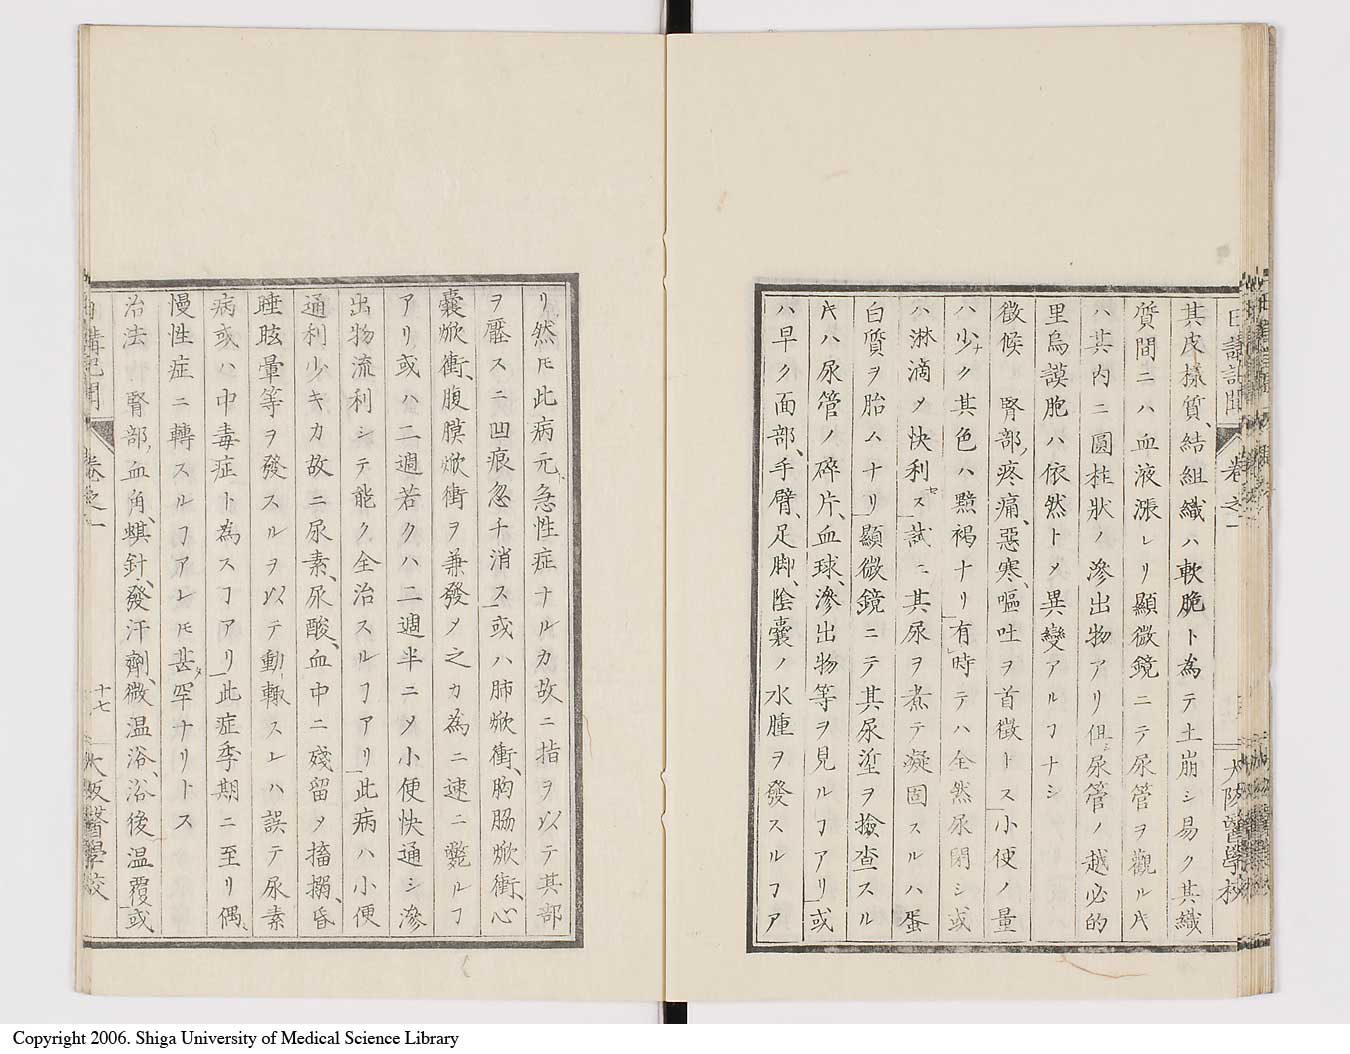 日講記聞 卷之一 大阪醫學校
其皮樣質、結組織ハ軟脆ト為テ土崩シ易ク其織
質間ニハ血液漲レリ顯微鏡ニテ尿管ヲ觀ルㇵ
ハ其內ニ圓柱狀ノ滲出物アリ但シ尿管ノ越必的
里烏謨胞ハ依然トメ異變アルヿナシ
徵候 腎部、疼痛、惡寒、嘔吐ヲ首徵トス小便ノ量
ハ少ナク其色ハ㸃褐ナリ有時テハ全然尿閉シ或
ハ淋滴メ快利セス試ニ其尿ヲ煮テ凝固スルハ蛋
白質ヲ胎ムナリ顯微鏡ニテ其尿埿ヲ撿查スル
𪜈ハ尿管ノ碎片、血球、滲出物等ヲ見ルヿアリ或
ハ早ク面部、手臂、足脚、陰囊ノ水腫ヲ發スルヿア
リ然𪜈此病元、急性症ナルカ故ニ指ヲ以テ其部
ヲ壓スニ凹痕忽チ消ス或ハ肺焮衝、胸膓焮衝、心
囊焮衝、腹膜焮衝ヲ兼發メ之カ為ニ速ニ斃ルヿ
アリ或ハ二週若クハ二週半ニメ小便快通シ滲
出物流利シテ能ク全治スルヿアリ此病ハ小便
通利少キカ故ニ尿素、尿酸、血中ニ殘留メ搐搦、昏
睡眩暈等ヲ發スルヲ以テ動、輙スレハ誤テ尿素
病或ハ中毒症ト為スヿアリ此症季期ニ至リ偶、
慢性症ニ轉スルヿアレ𪜈甚タ罕ナリトス
治法 腎部、血角、蜞針、發汗劑、微温浴、浴後温覆或
日講記聞 卷之一 十七 大阪醫學校
Copyright 2006. Shiga University of Medical Science Library